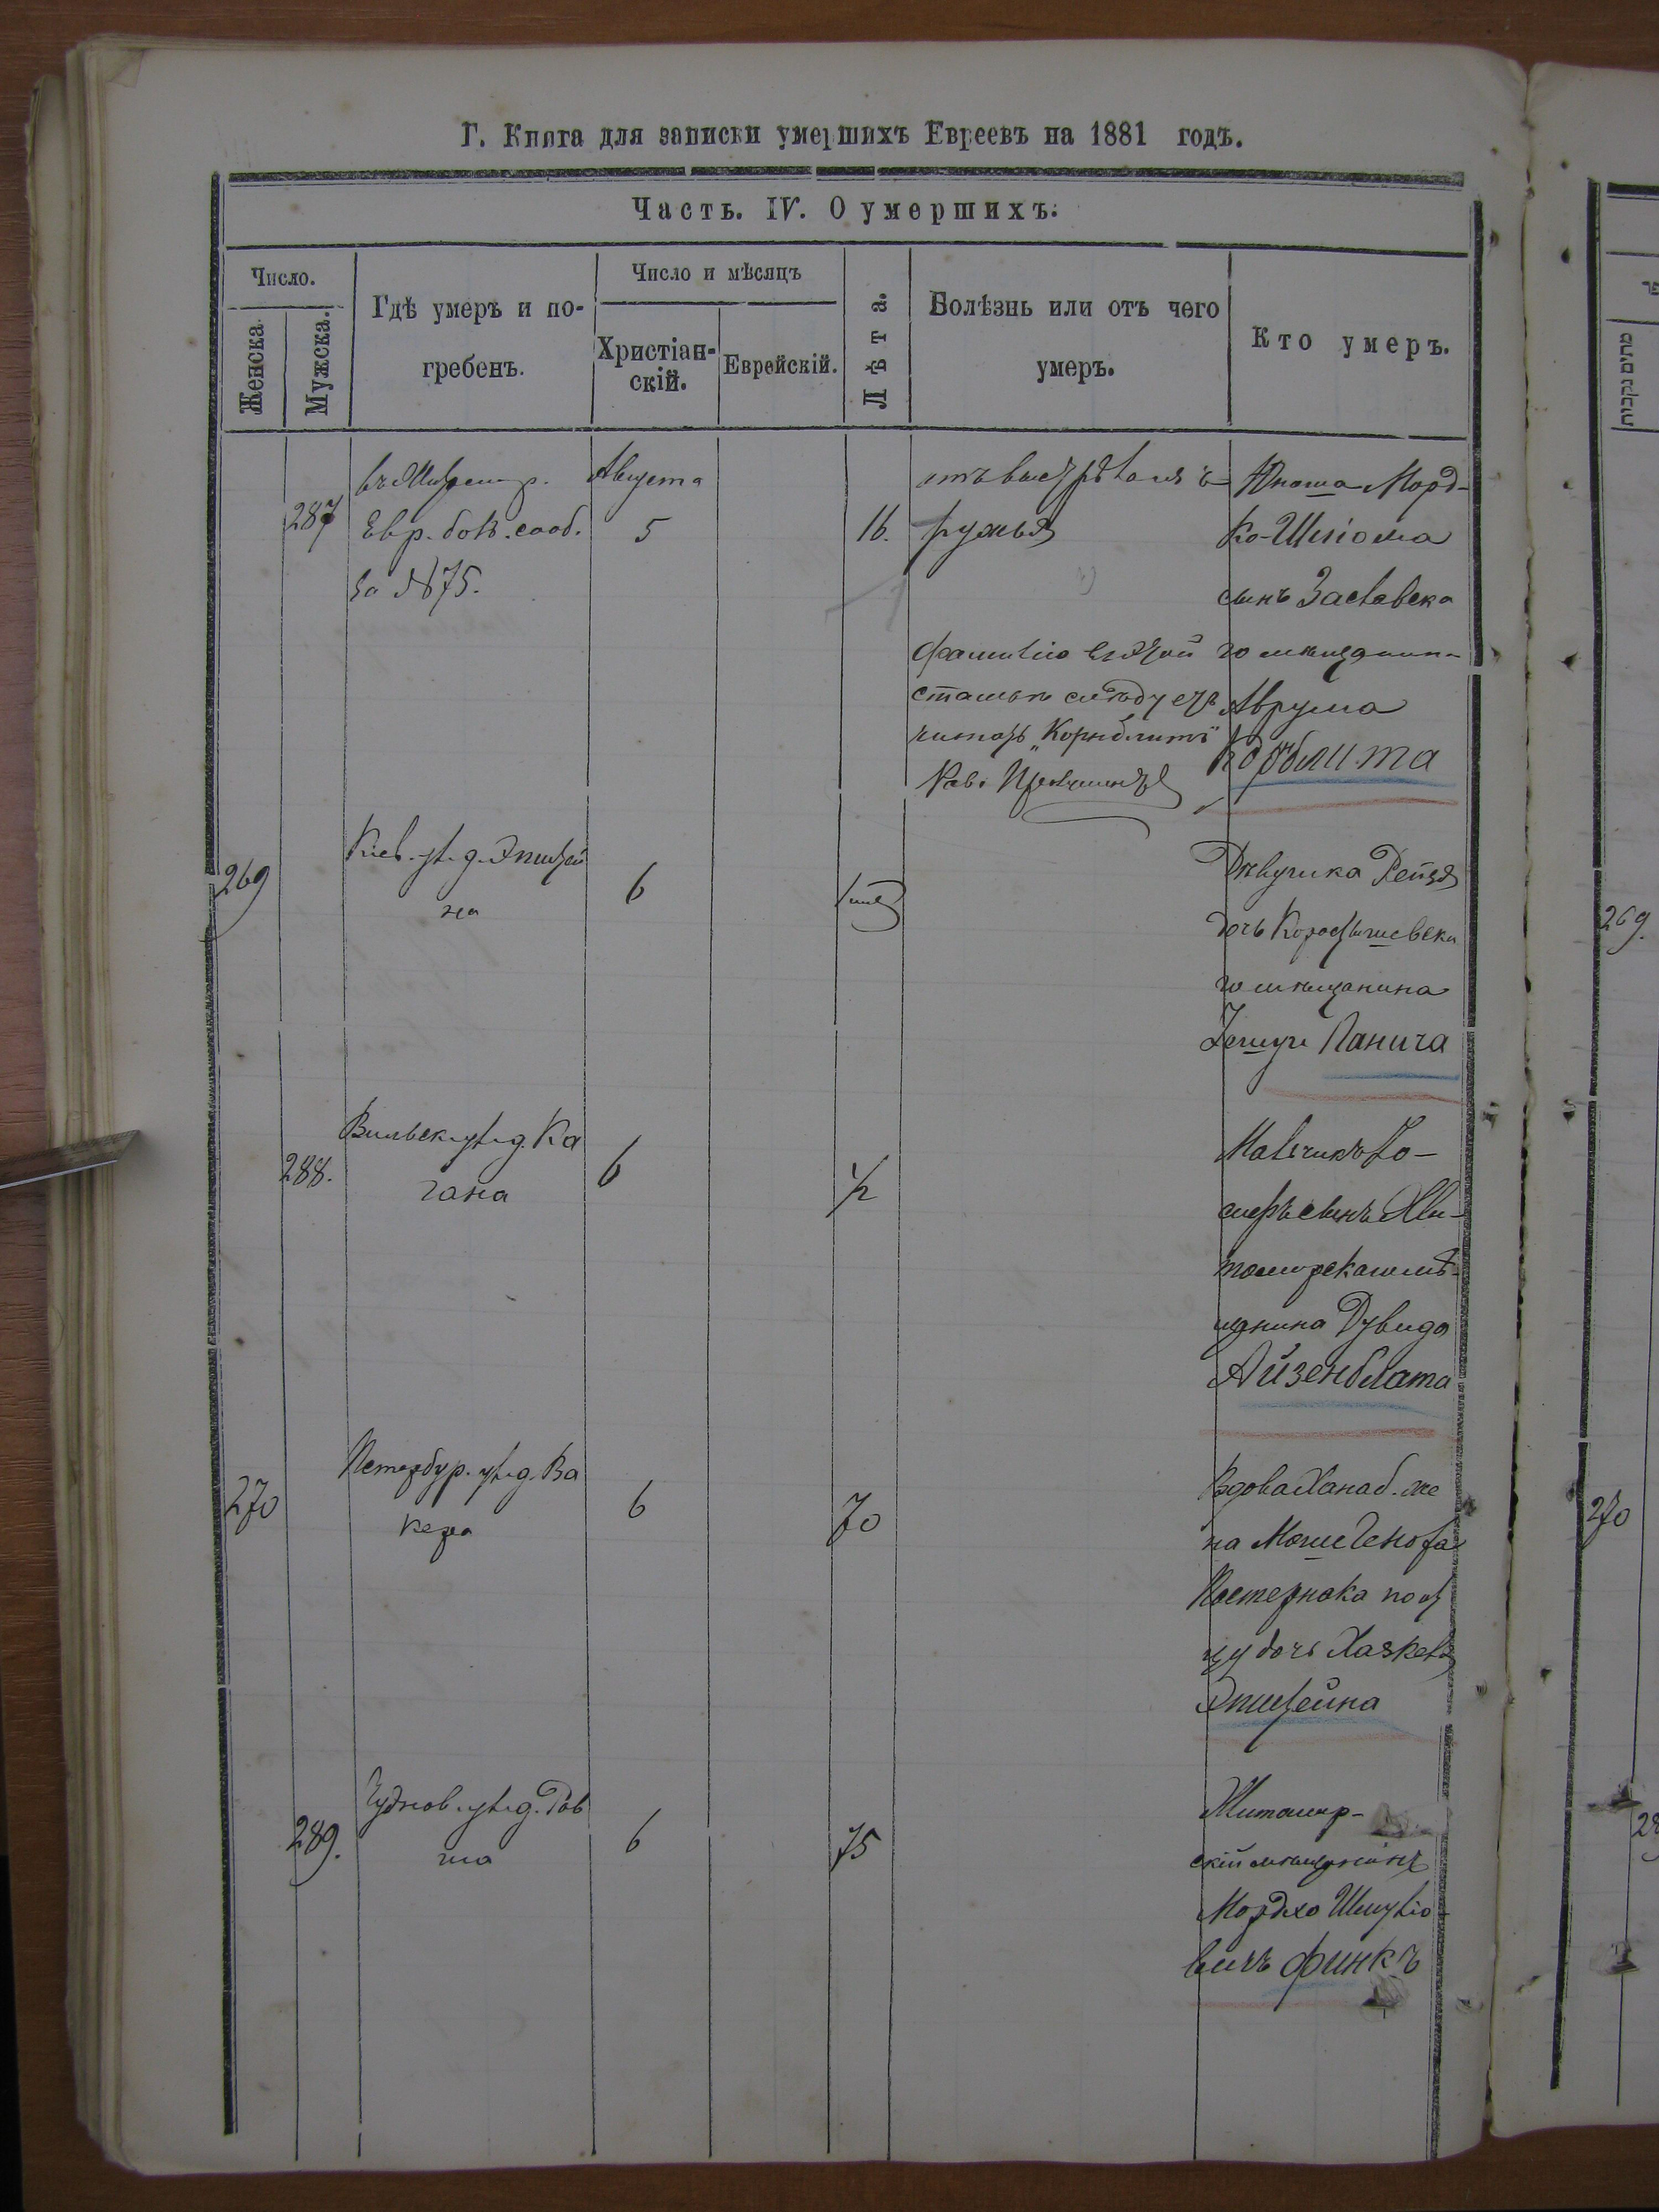 Г. Книга для записки умершихъ Евреевъ на 1881 годъ.
Часть. IV. О умершихъ.
Число.
Женска
Мужска.
Гдѣ умеръ и по-
гребенъ.
Число и мѣсяцъ
Христіан-
скій.
Еврейскій.
Лѣта.
Болѣзнь или отъ чего
умеръ.
Кто умеръ.
287
Евр. бол. сооб.
за №75.
Августа
5
16.
отъ выстрѣла изъ
ружья
Юноша Морд-
ко-Шліома
сынъ Заславска
го мѣщанина
Аврума
фамилію въ этой
статьѣ слѣдуетъ
читать „Корнблитъ"
Рав.
269
Кіев. ул. д. Эпштей
на
6
Дѣвушка Рейзя
дочь Коростышевска
го мѣщанина
Панича
288.
Вильск. ул. д. Ка
гана
6
1/2
Мальчикъ Іо-
сифъ сынъ Жи-
томирскаго мѣ-
щанина Дувида
Айзенблата
270
Петербур. ул. д. Ва
кера
6
70
Вдова Хана б. же
на
Постернака по от
цу дочь Хаскеля
Эпштейна
289.
Чуднов. ул. д.
6
75
Житомир-
скій мѣщанинъ
Мордко Шмуліо-
вичъ Финкъ
מתים נקבות
269.
270
28